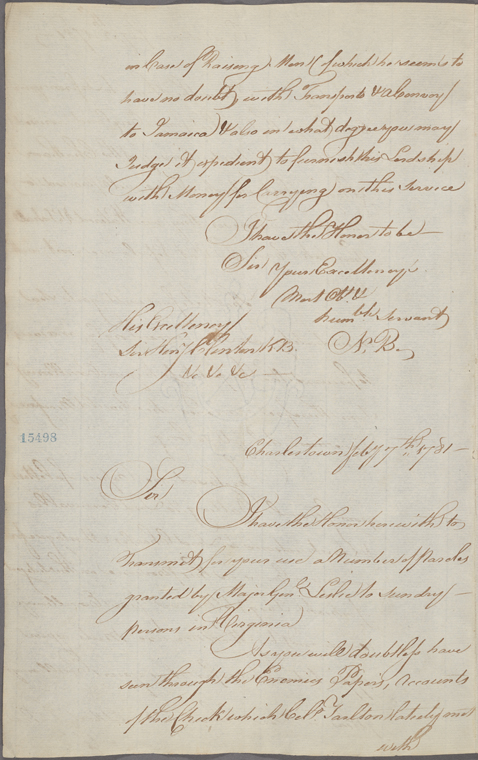 in Case of Raising Men (of which he seems to
have no doubt) with Transports & a Convoy
to Jamaica & also in what degree you may
Judge it expedient to furnish His Lordship
with Money for Carrying on this Service
I have the Honor to be
Sir
Your Excellency's
Most Obt &
humble Servant
N. B.
His Excellency
Sir Heny Clinton K.B.
&c &c &c
15498
Charlestown feby 7th 1781
Sir
I have the Honor herewith to
Transmit for your use a Number of Paroles
granted by Major Genl Leslie to Sundry
persons in Virginia
As you will doubtless have
seen through the Enemies Papers, Accounts
of the Check which Coll Tarlton lately met
with